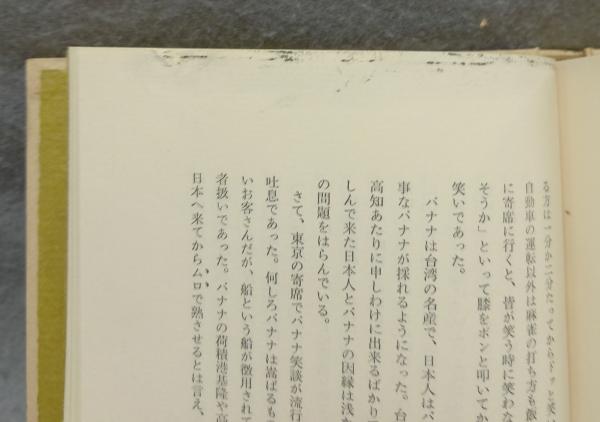 る方は一分か二分たってからドッと笑い
自動車の運転以外は麻雀の打ち方も飯
に寄席に行くと、皆が笑う時に笑わな
そうか」といって膝をポンと叩いてか
笑いであった。
バナナは台湾の名産で、日本人はバ
事なバナナが採れるようになった。台
高知あたりに申しわけに出来るばかりで
しんで来た日本人とバナナの因縁は浅か
の問題をはらんでいる。
さて、東京の寄席でバナナ笑談が流行
吐息であった。何しろバナナは嵩ばるもの
いお客さんだが、船という船が徴用されて
者扱いであった。バナナの荷積港基隆や高
日本へ来てからムロで熟させるとは言え、